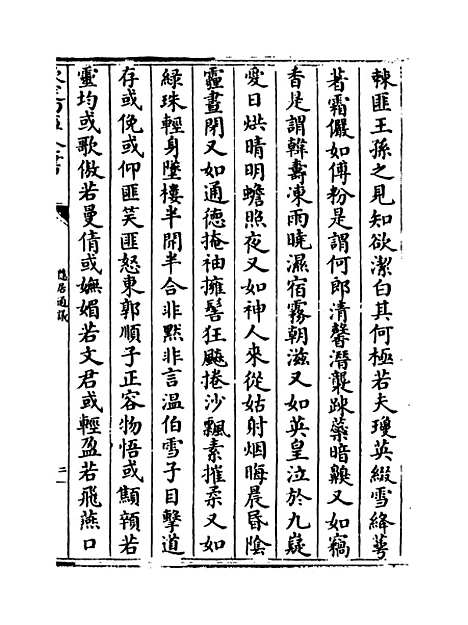 棘匪王孫之見知欲潔白其何極若夫瓊英綴雪絳萼
著霜儼如傅粉是謂何郎清馨潛襲踈蘂暗臭又如竊
香是謂韓壽凍雨曉濕宿霧朝滋又如英皇泣於九嶷
愛日烘晴明蟾照夜又如神人來從姑射烟晦晨昏陰
霾晝閉又如通徳掩袖擁髻狂飈捲沙飄素摧柔又如
緑珠輕身墜樓半開半合非黙非言温伯雪子目擊道
存或俛或仰匪笑匪怒東郭順子正容物悟或顦顇若
靈均或歌傲若曼倩或嫵媚若文君或輕盈若飛燕口
隱居通議